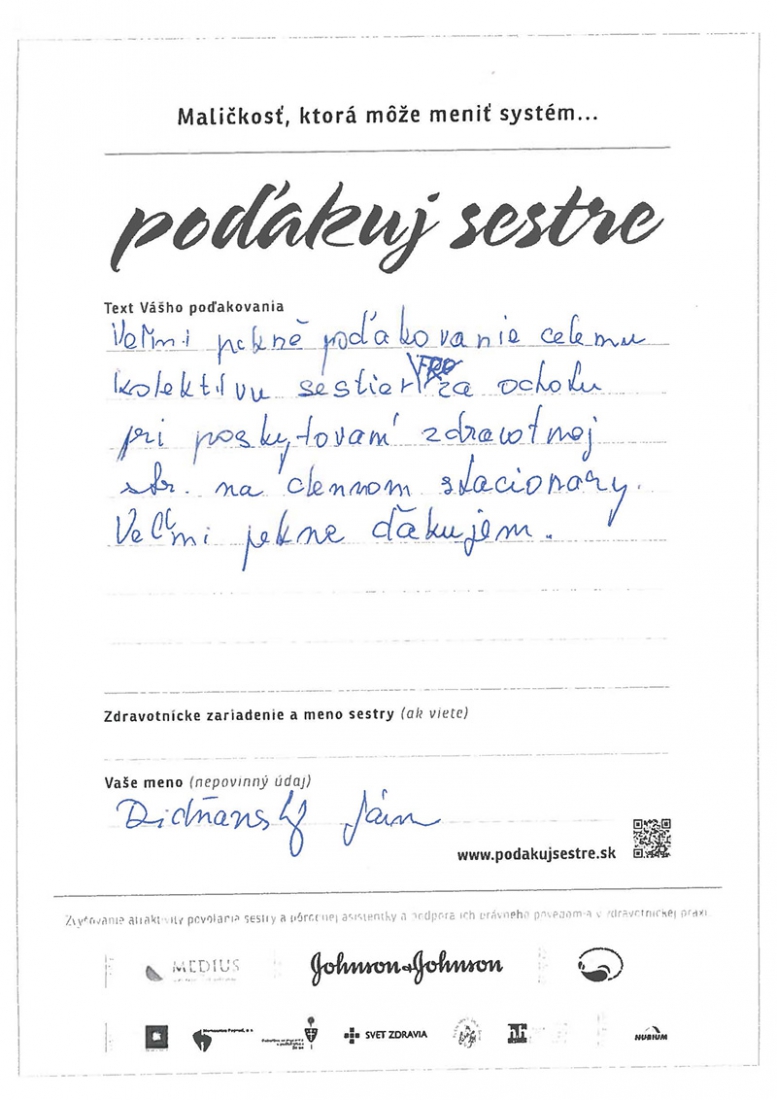 Maličkosť, ktorá môže meniť systém...
poďakuj sestre
Text Vášho poďakovania
Veľmi pekné poďakovanie celemu
kolektívu sestier za ochotu
pri poskytovaní zdravotnej
str. na dennom stacionary.
Veľmi pekne ďakujem.
Zdravotnícke zariadenie a meno sestry (ak viete)
Vaše meno (nepovinný údaj)
Ján
www.podakujsestre.sk
Zvyšovanie atraktivity povolania sestry a pôrodnej asistentky a podpora ich právneho povedomia v zdravotníckej praxi.
MEDIUS
Johnson & Johnson
SVET ZDRAVIA
hh
NUBIUM